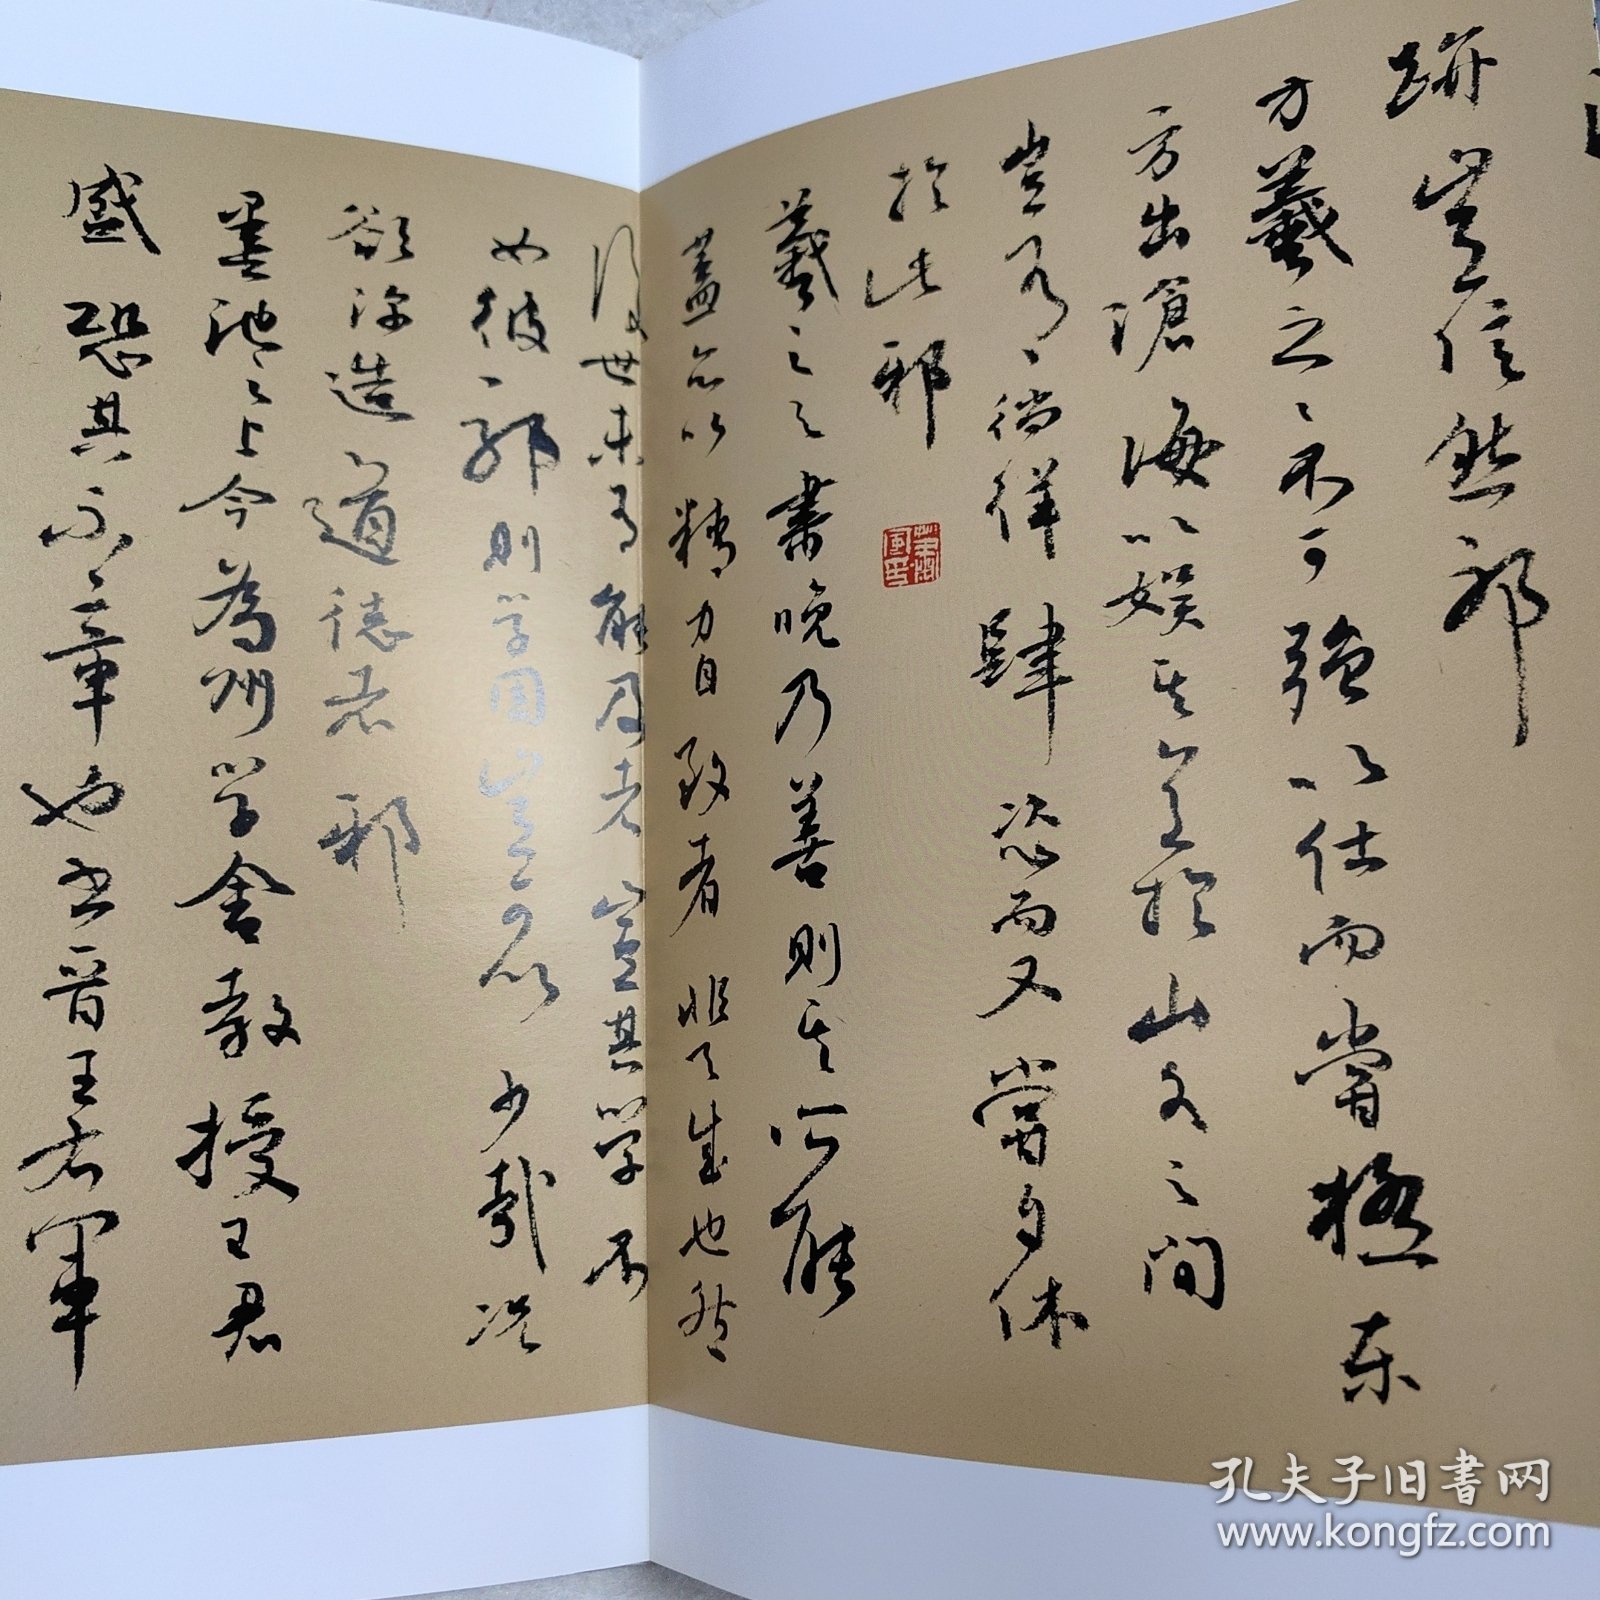 跡豈信然邪
方羲之之不可强以仕而嘗極東
方出滄海以娱其意於山水之間
豈有徜徉肆恣而又嘗自休
於此邪
羲之之書晚乃善則其所能
蓋亦以精力自致者非天成也然
後世未有能及者豈其學不
如彼邪則學固豈可以少哉况
欲深造道德者邪
墨池之上今為州學舍教授王君
盛恐其不章也書晋王右軍
孔夫子旧书网
www.kongfz.com